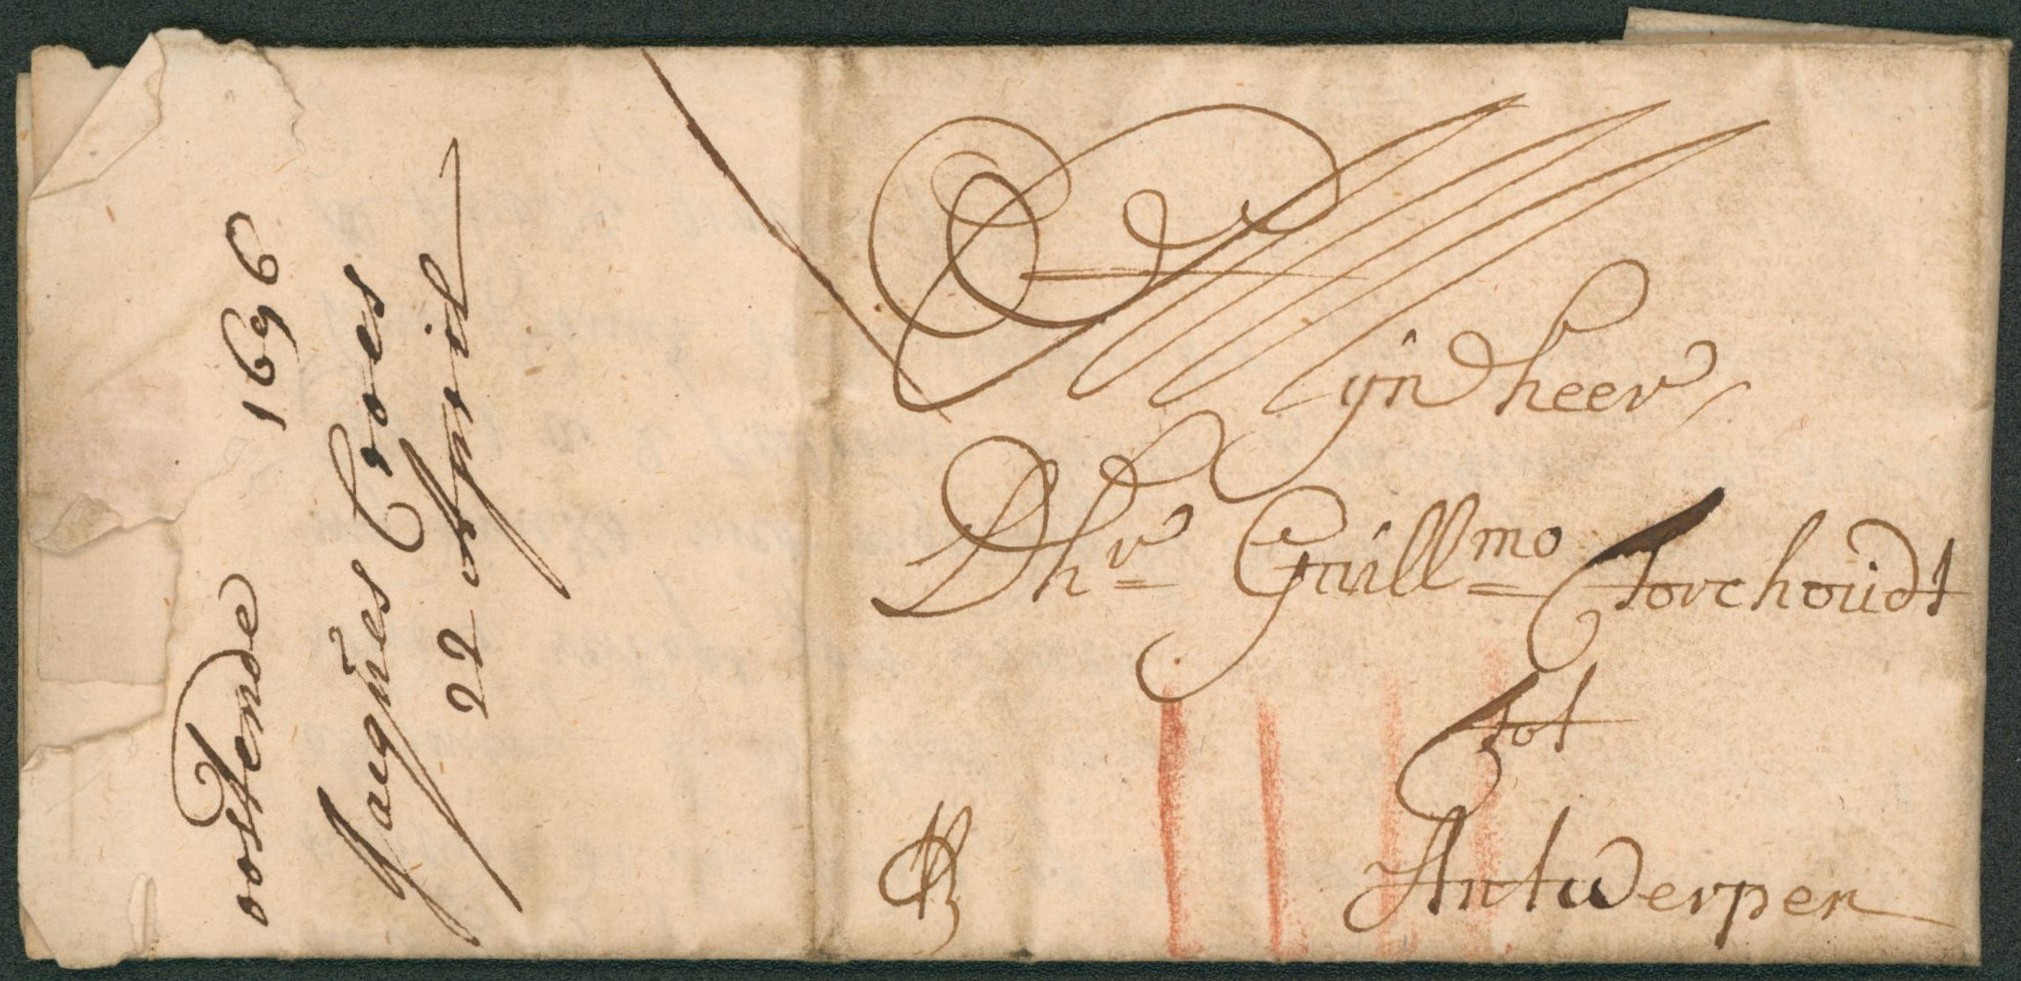 oostende 1696
Jaques Croes
22 April
Mijn heer
Dhr Guillmo Forchoudt
tot
Antwerpen